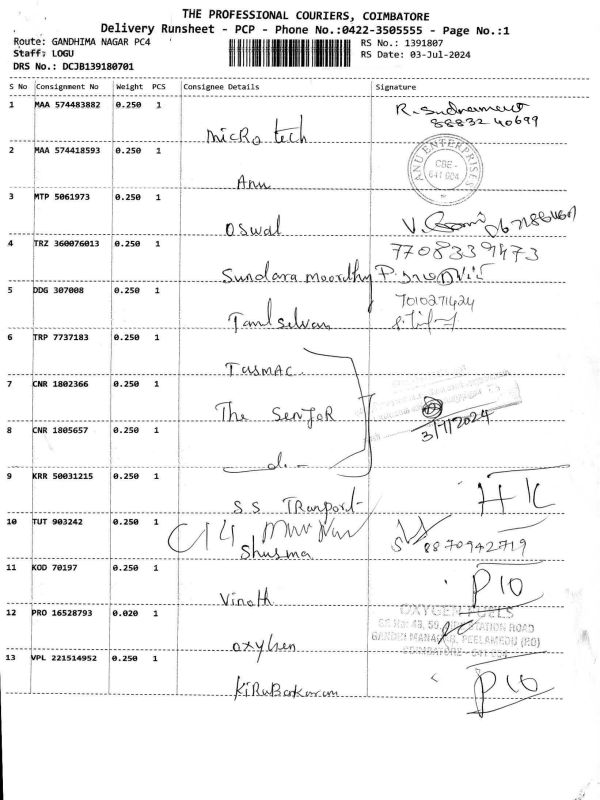 THE PROFESSIONAL COURIERS, COIMBATORE
Delivery Runsheet - PCP - Phone No.:0422-3505555 - Page No.:1
Route: GANDHIMA NAGAR PC4
RS No.: 1391807
Staff: LOGU
RS Date: 03-Jul-2024
DRS No.: DCJB139180701
S No Consignment No Weight PCS Consignee Details Signature
1 MAA 574483882 0.250 1
8883240699
Micro tech
2 MAA 574418593 0.250 1
ANU ENTERPRISES
CBE-
641 004
Anu
3 MTP 5061973 0.250 1
Oswal
4 TRZ 360076013 0.250 1
7708339473
Sundara moorthy
5 DDG 307008 0.250 1
7010271424
Tamilselvan
6 TRP 7737183 0.250 1
TASMAC
7 CNR 1802366 0.250 1
The SenJoR
3/7/2024
8 CNR 1805657 0.250 1
9 KRR 50031215 0.250 1
S S Tranport
10 TUT 903242 0.250 1
8870942719
Shusma
11 KOD 70197 0.250 1
P10
Vinoth
12 PRO 16528793 0.020 1
OXYGEN FUELS
STATION ROAD
PEELAMEDU (PO)
COIMBATORE
oxygen
13 VPL 221514952 0.250 1
P10
KiRuBakaram